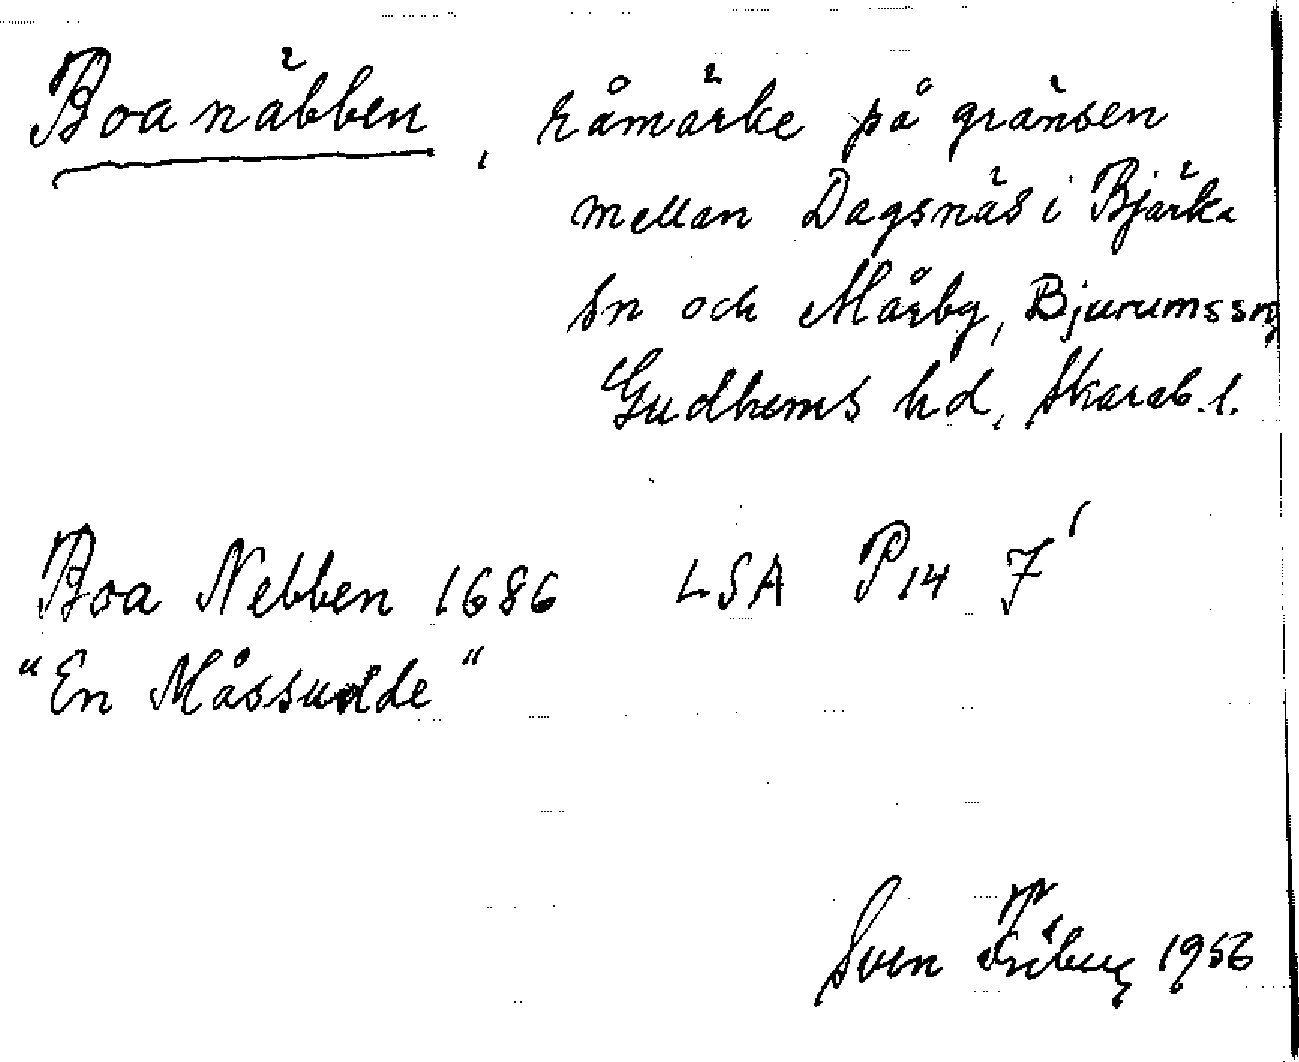 Boanäbben, råmärke på gränsen
mellan Dagsnäs i Bjärka
sn och Mårby, Bjurums sn,
Gudhems hd, Skarab. l.
Boa Nebben 1686 LSA P14 7'
"En Måssudde"
Sven Fröberg 1956